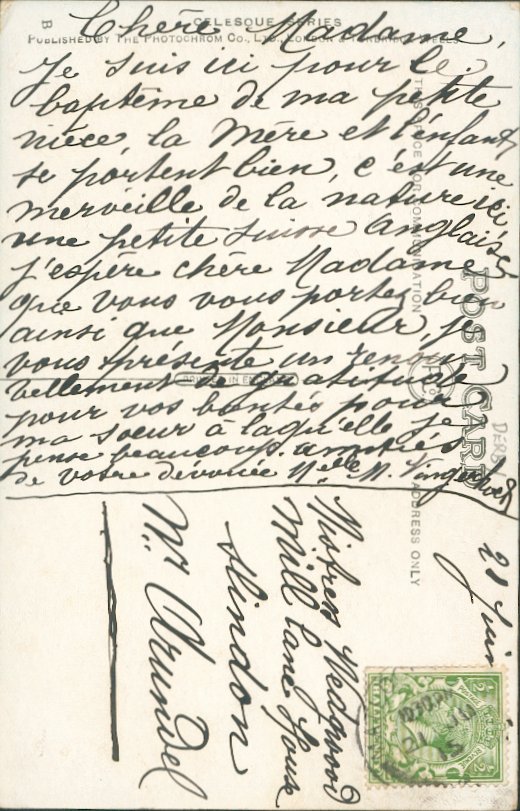 B
CELESQUE SERIES
PUBLISHED BY THE PHOTOCHROM CO., LTD., LONDON & TUNBRIDGE WELLS
Chère Madame,
Je suis ici pour le
baptême de ma petite
nièce, la Mère et l'enfant
se portent bien, c'est une
merveille de la nature ici,
une petite suisse anglaise
j'espère chère Madame
que vous vous portez bien
ainsi que Monsieur, je
vous présente un renou
vellement de gratitude
pour vos bontés pour
ma soeur à laquelle je
pense beaucoup. amitiés
de votre dévouée Melle M.
THIS SPACE FOR COMMUNICATION
POST CARD
ADDRESS ONLY
PRINTED IN ENGLAND
21 Juin
Mistress Wedgwood
Mill Lane House
Slindon
Nr Arundel